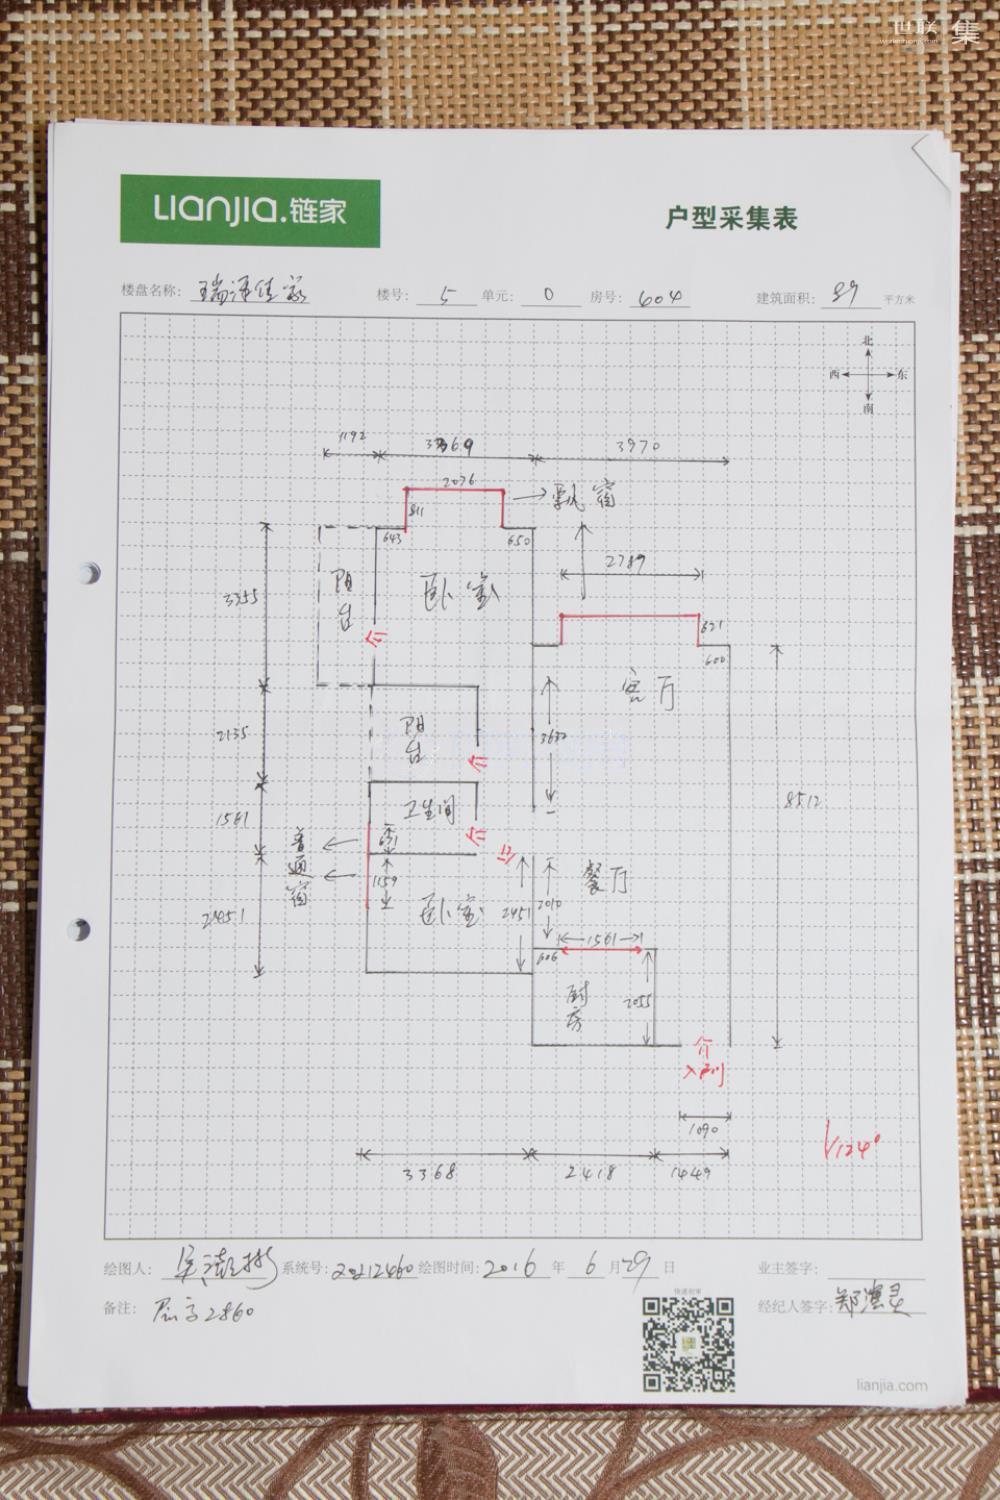 世联 集
LIANJIA.链家
户型采集表
楼盘名称: 瑞泽佳苑 楼号: 5 单元: 0 房号: 604 建筑面积: 89 平方米
北
西 东
南
1192 3369 3970
2076
811
飘窗
643 650
2789
阳台
卧室
3355
621
600
客厅
阳台
2135
3632
8512
卫生间
1561
普通窗
651
1159
餐厅
2451
卧室
2451
2010
1561
606
厨房
2055
入户门
1090
3368 2418 1449
124°
绘图人: 系统号: 20212460 绘图时间: 2016 年 6 月 29 日 业主签字:
备注: 层高2860
快速初审
经纪人签字:
lianjia.com